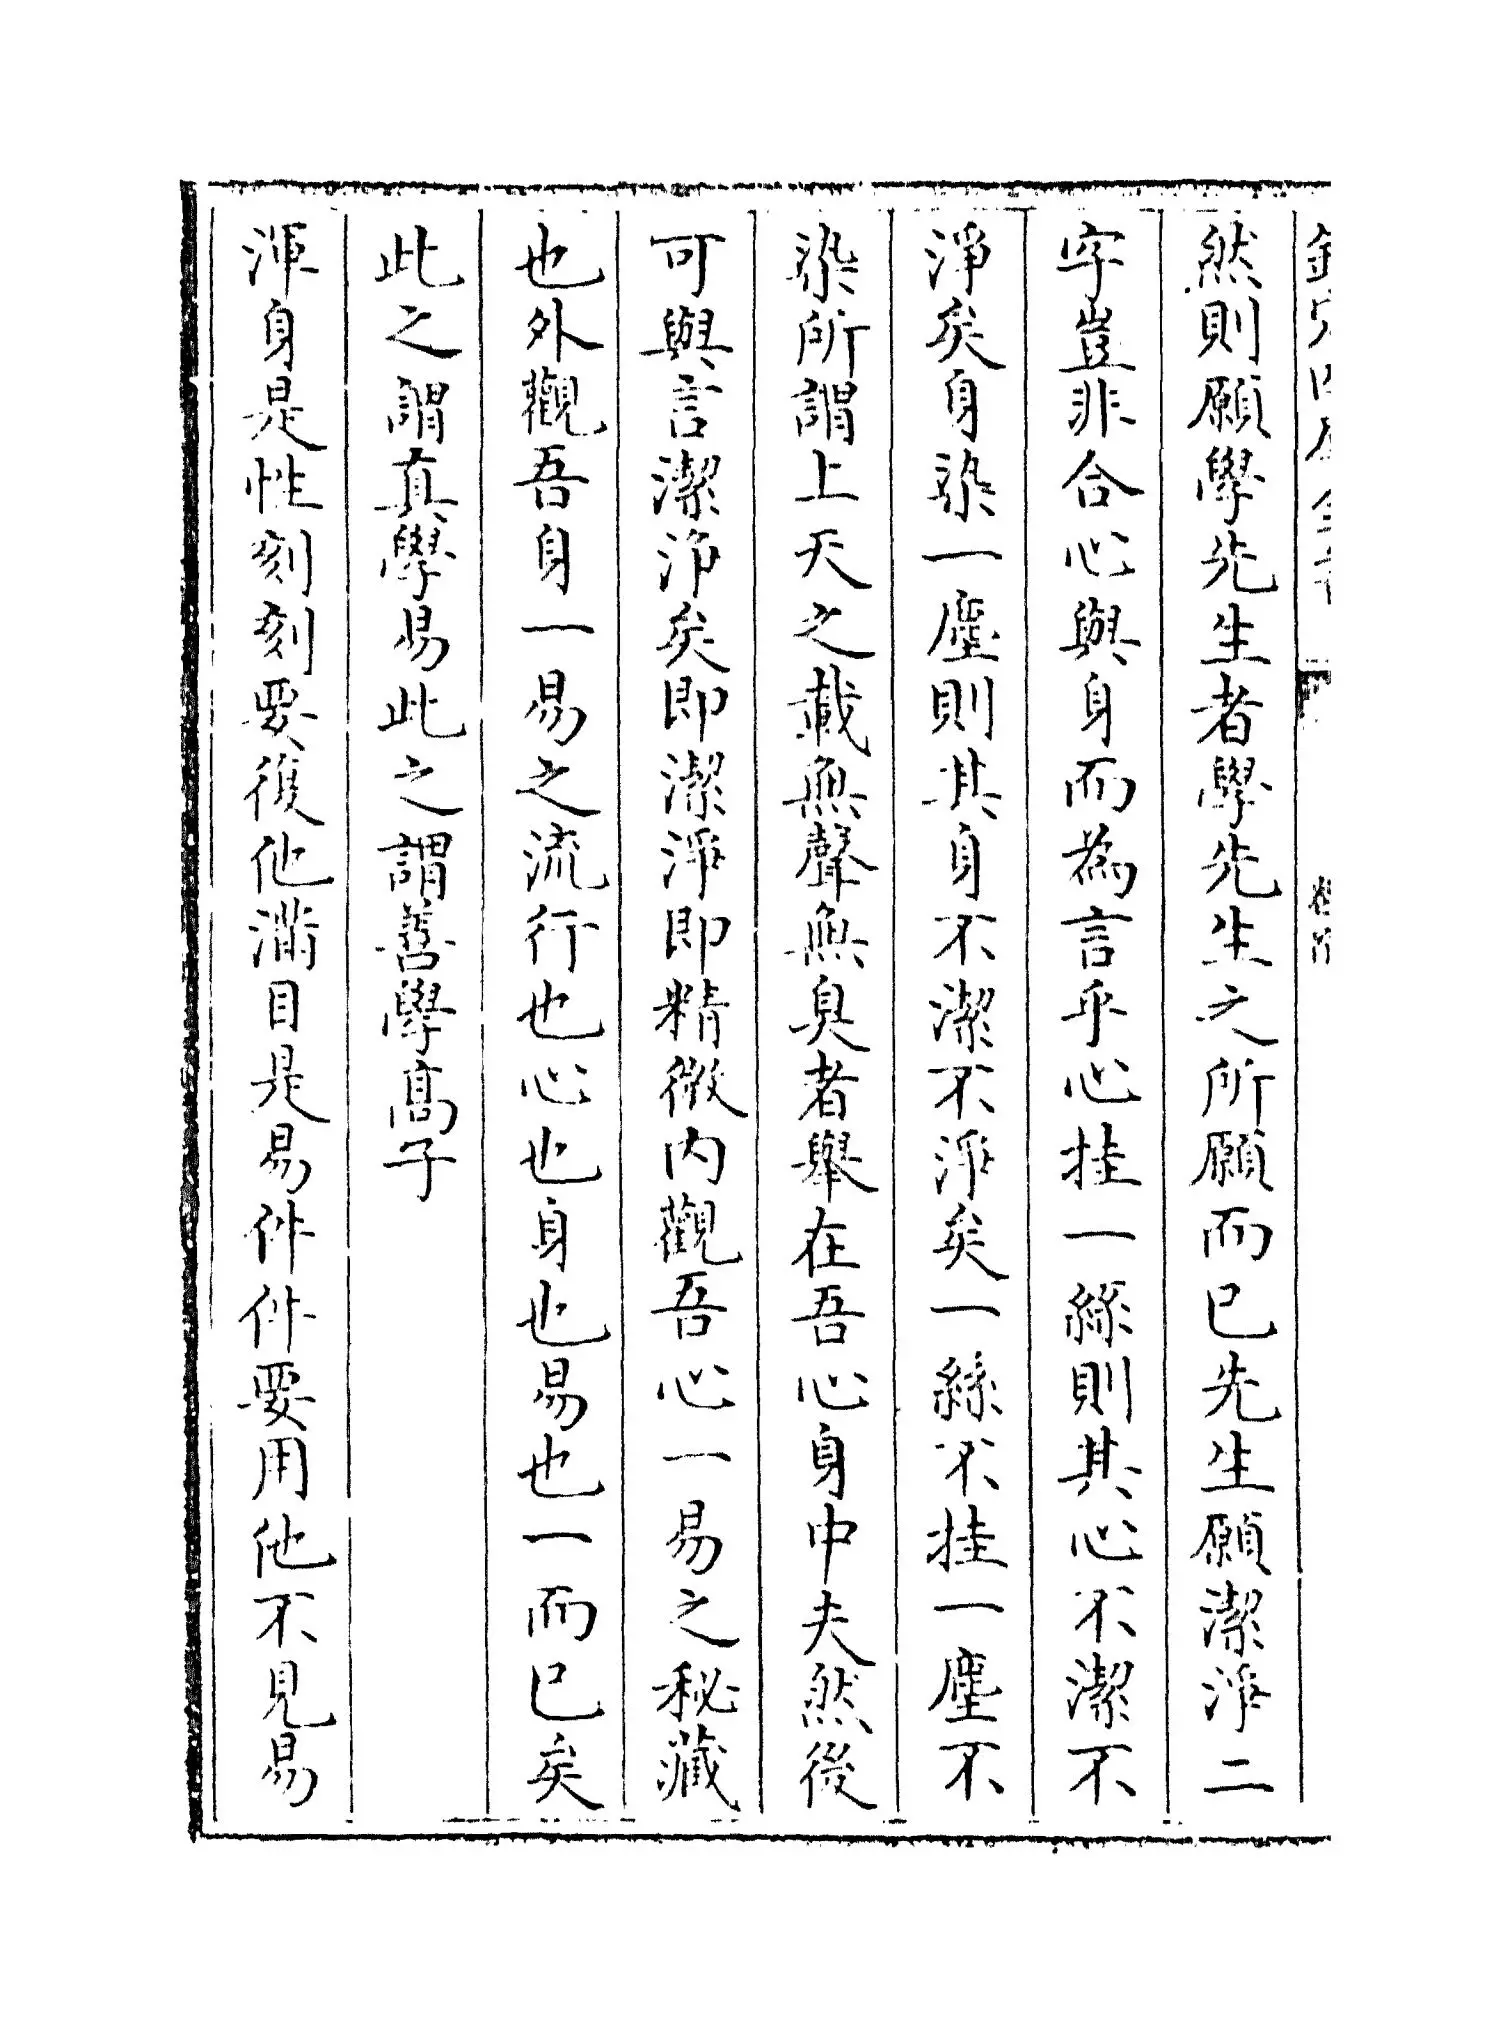 然則願學先生者學先生之所願而已先生願潔淨二
字豈非合心與身而為言乎心挂一絲則其心不潔不
淨矣身染一塵則其身不潔不淨矣一絲不挂一塵不
染所謂上天之載無聲無臭者舉在吾心身中夫然後
可與言潔淨矣即潔淨即精微內觀吾心一易之秘藏
也外觀吾身一易之流行也心也身也易也一而已矣
此之謂真學易此之謂善學高子
渾身是性刻刻要復他滿目是易件件要用他不見易